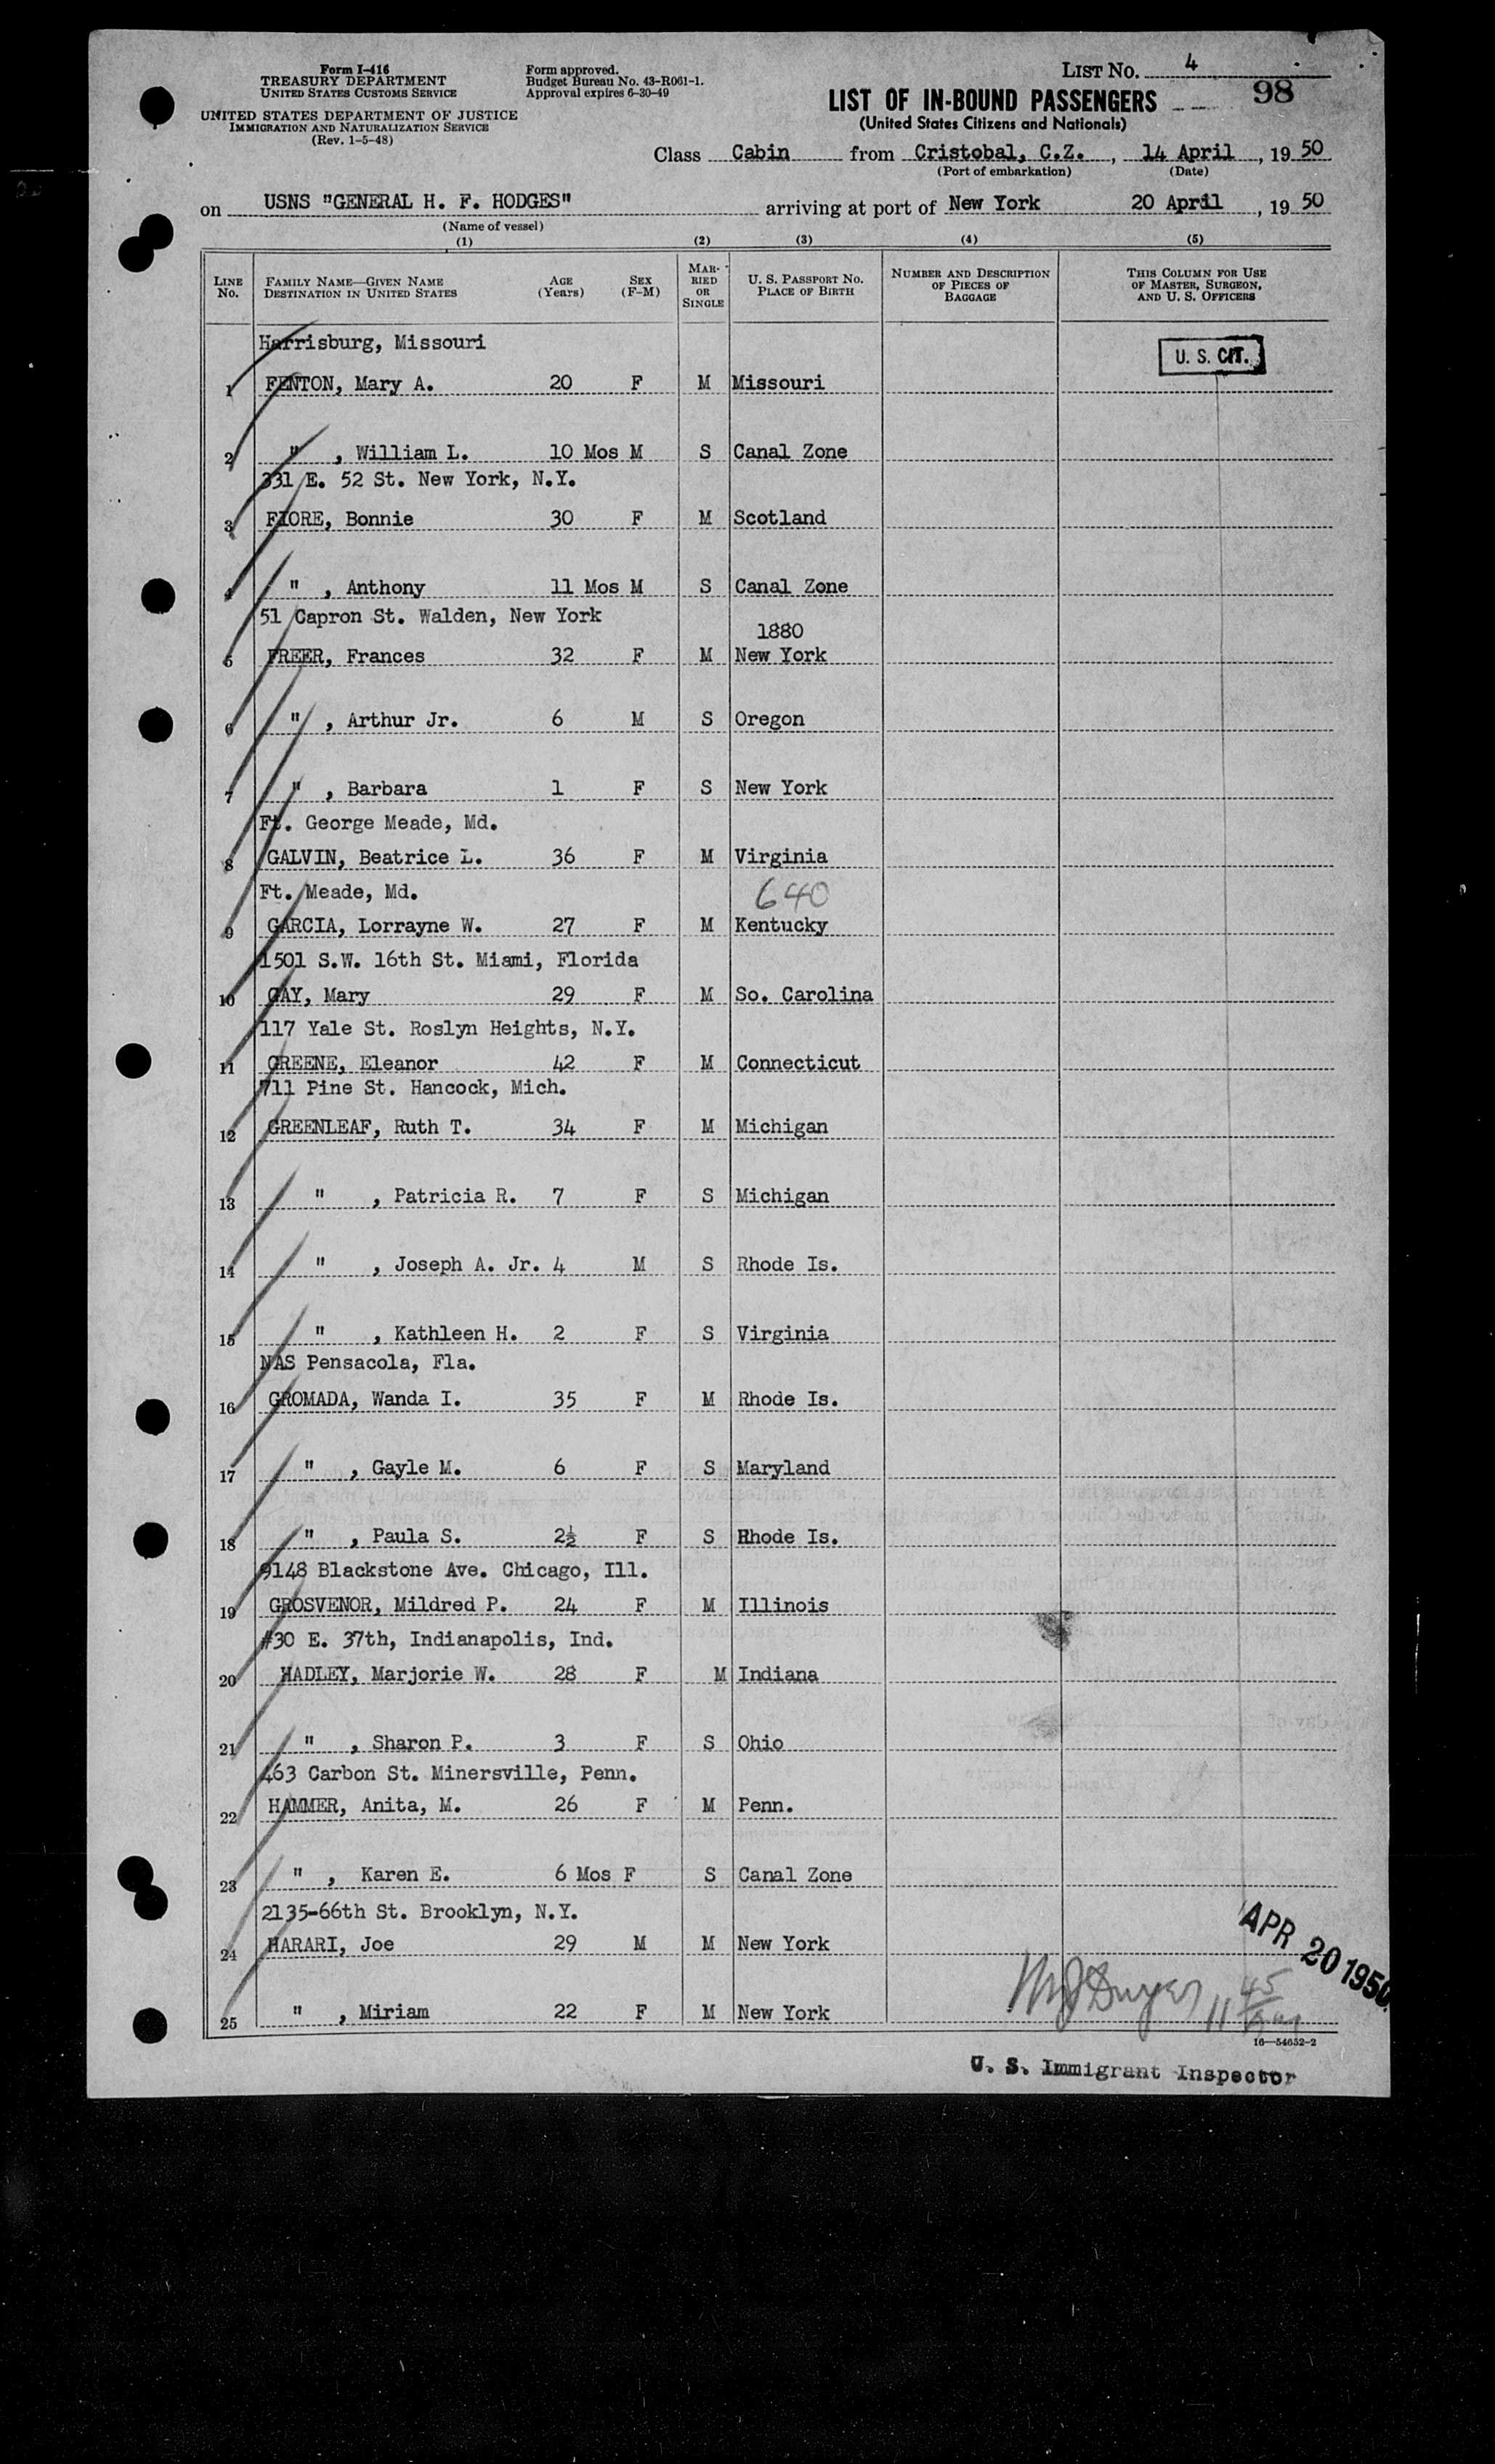 Form I-416
TREASURY DEPARTMENT
UNITED STATES CUSTOMS SERVICE
UNITED STATES DEPARTMENT OF JUSTICE
IMMIGRATION AND NATURALIZATION SERVICE
(Rev. 1-5-48)
Form approved.
Budget Bureau No. 43-R061-1.
Approval expires 6-30-49
LIST NO. 4
98
LIST OF IN-BOUND PASSENGERS
(United States Citizens and Nationals)
Class Cabin from Cristobal, C.Z. , 14 April , 19 50
(Port of embarkation) (Date)
on USNS "GENERAL H. F. HODGES" arriving at port of New York 20 April , 19 50
(Name of vessel)
(1) (2) (3) (4) (5)
LINE NO. FAMILY NAME—GIVEN NAME DESTINATION IN UNITED STATES AGE (Years) SEX (F-M) MARRIED OR SINGLE U. S. PASSPORT NO. PLACE OF BIRTH NUMBER AND DESCRIPTION OF PIECES OF BAGGAGE THIS COLUMN FOR USE OF MASTER, SURGEON, AND U. S. OFFICERS
Harrisburg, Missouri
U. S. CIT.
1 FENTON, Mary A. 20 F M Missouri
2 " , William L. 10 Mos M S Canal Zone
331 E. 52 St. New York, N.Y.
3 FIORE, Bonnie 30 F M Scotland
4 " , Anthony 11 Mos M S Canal Zone
51 Capron St. Walden, New York
1880
5 FREER, Frances 32 F M New York
6 " , Arthur Jr. 6 M S Oregon
7 " , Barbara 1 F S New York
Ft. George Meade, Md.
8 GALVIN, Beatrice L. 36 F M Virginia
Ft. Meade, Md. 640
9 GARCIA, Lorrayne W. 27 F M Kentucky
1501 S.W. 16th St. Miami, Florida
10 GAY, Mary 29 F M So. Carolina
117 Yale St. Roslyn Heights, N.Y.
11 GREENE, Eleanor 42 F M Connecticut
711 Pine St. Hancock, Mich.
12 GREENLEAF, Ruth T. 34 F M Michigan
13 " , Patricia R. 7 F S Michigan
14 " , Joseph A. Jr. 4 M S Rhode Is.
15 " , Kathleen H. 2 F S Virginia
NAS Pensacola, Fla.
16 GROMADA, Wanda I. 35 F M Rhode Is.
17 " , Gayle M. 6 F S Maryland
18 " , Paula S. 2½ F S Rhode Is.
9148 Blackstone Ave. Chicago, Ill.
19 GROSVENOR, Mildred P. 24 F M Illinois
#30 E. 37th, Indianapolis, Ind.
20 HADLEY, Marjorie W. 28 F M Indiana
21 " , Sharon P. 3 F S Ohio
463 Carbon St. Minersville, Penn.
22 HAMMER, Anita, M. 26 F M Penn.
23 " , Karen E. 6 Mos F S Canal Zone
2135-66th St. Brooklyn, N.Y.
APR 20 1950
24 HARARI, Joe 29 M M New York
25 " , Miriam 22 F M New York
11 45
16—54652-2
U. S. Immigrant Inspector